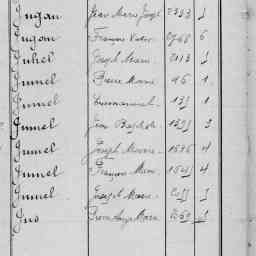 Jugan Jean Marie Joseph 2333 1
Jugan François Victor 2768 6
Juhel Joseph Marie 2013 1
Jumel Pierre Marie 96 1
Jumel 1
Jumel Jean Baptiste 3
Jumel Joseph Marie 1696 4
Jumel François Marie 4
Jumel Joseph Marie 1
Jus Pierre Ange Marie